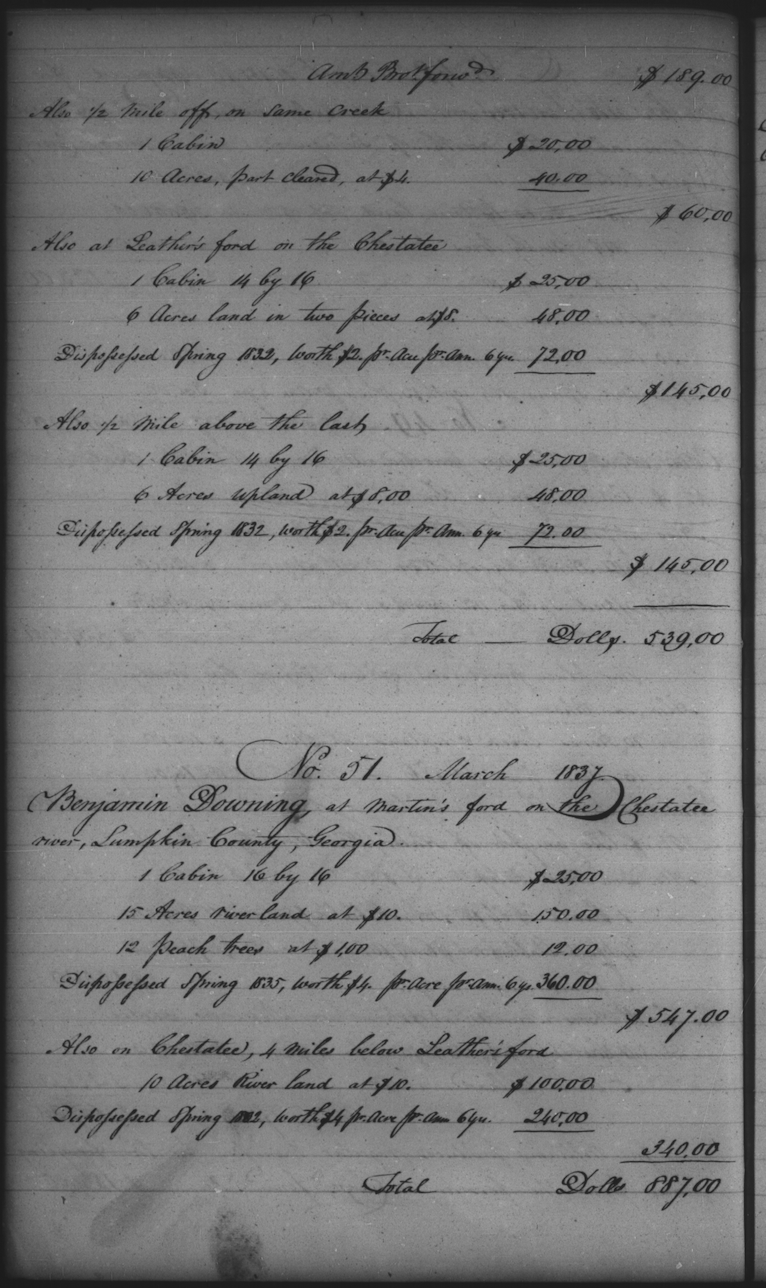 Amt Brot. forwd. $189.00
Also 1/2 mile off, on same creek
1 Cabin $20.00
10 Acres, part cleared, at $4. 40.00
$60.00
Also at Leather's ford on the Chestatee
1 Cabin 14 by 16 $25.00
6 Acres land in two pieces at $8. 48.00
Dispossessed Spring 1832, worth $2. pr. Acre pr. Ann. 6 ys. 72.00
$145.00
Also 1/2 mile above the last,
1 Cabin 14 by 16 $25.00
6 Acres upland at $8.00 48.00
Dispossessed Spring 1832, worth $2. pr. Acre pr. Ann. 6 ys. 72.00
$145.00
Total — Dolls. 539.00
No. 51. March 1837
Benjamin Downing, at Martin's ford on the Chestatee
river, Lumpkin County, Georgia.
1 Cabin 16 by 16 $25.00
15 Acres river land at $10. 150.00
12 Peach trees at $1.00 12.00
Dispossessed Spring 1835, worth $4. pr. Acre pr. Ann. 6 ys. 360.00
$547.00
Also on Chestatee, 4 miles below Leather's ford
10 Acres River land at $10. $100.00
Dispossessed Spring worth $4 pr. Acre pr. Ann 6 ys. 240.00
340.00
Total Dolls 887.00